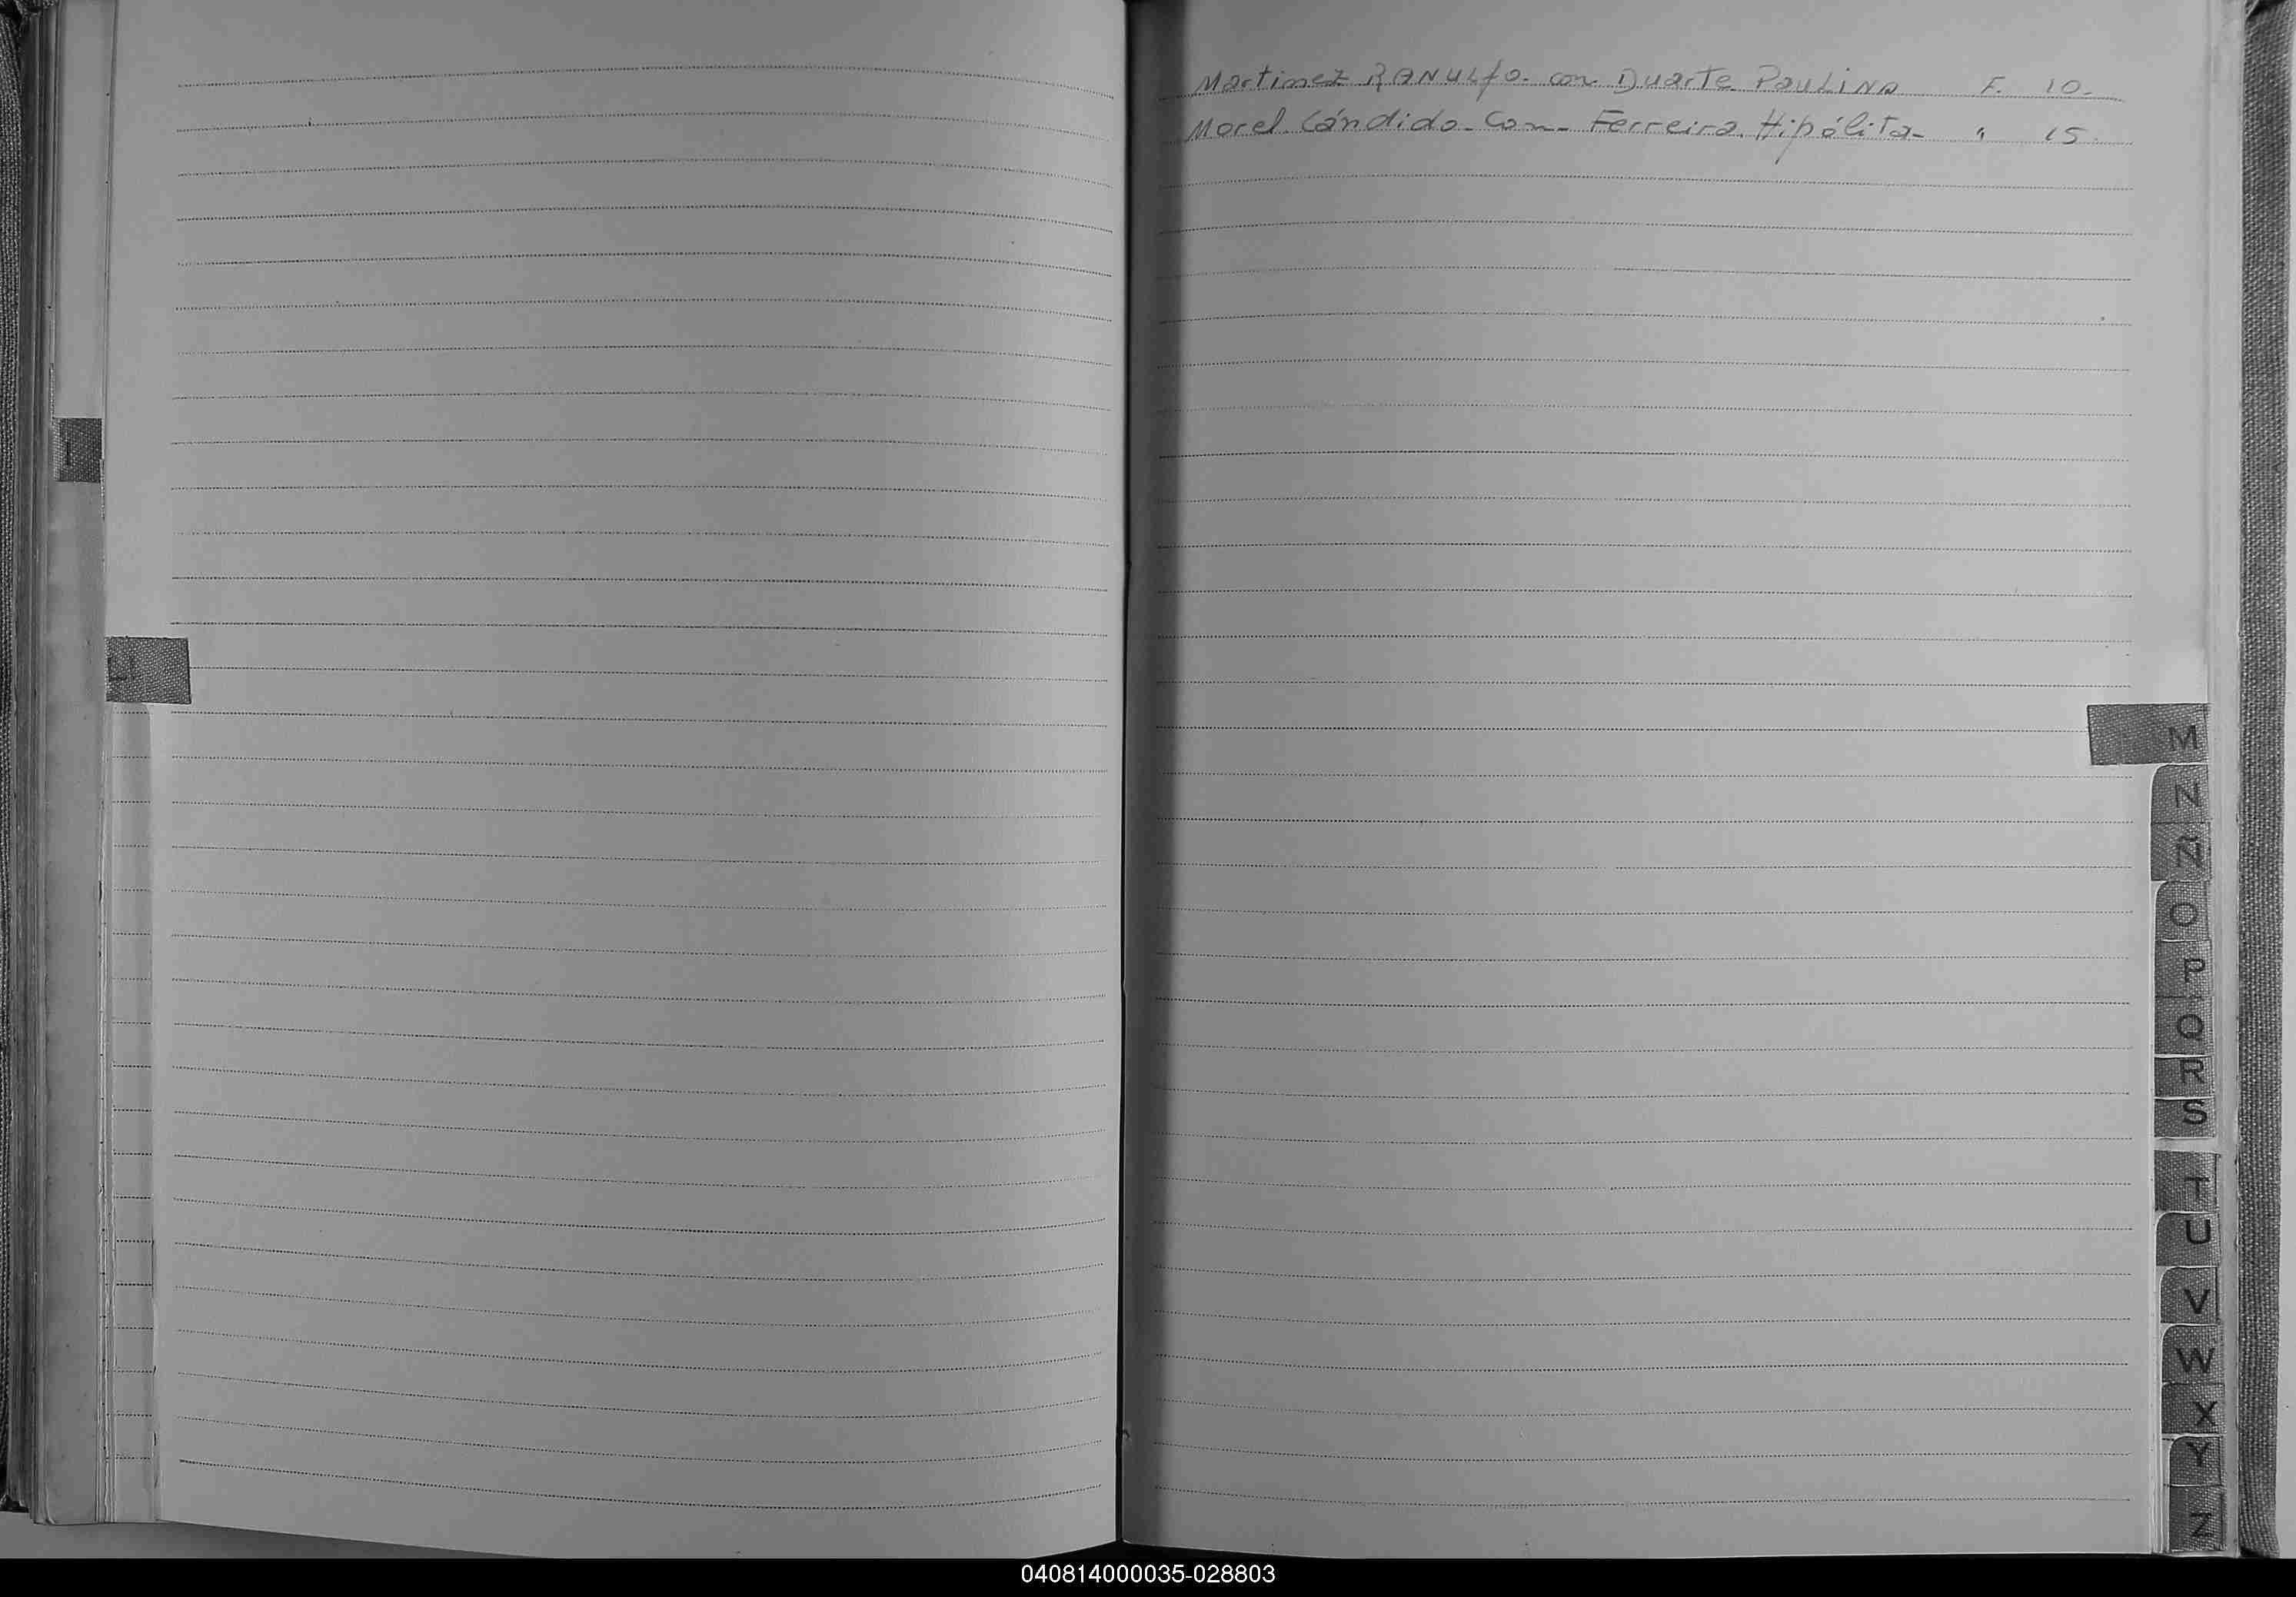 Martinez RANULfo. con Duarte PauLiNa F. 10.
Morel. Cándido - Con - Ferreira. Hipólita - " 15.
I
LL
M
N
Ñ
O
P
Q
R
S
T
U
V
W
X
Y
Z
040814000035-028803